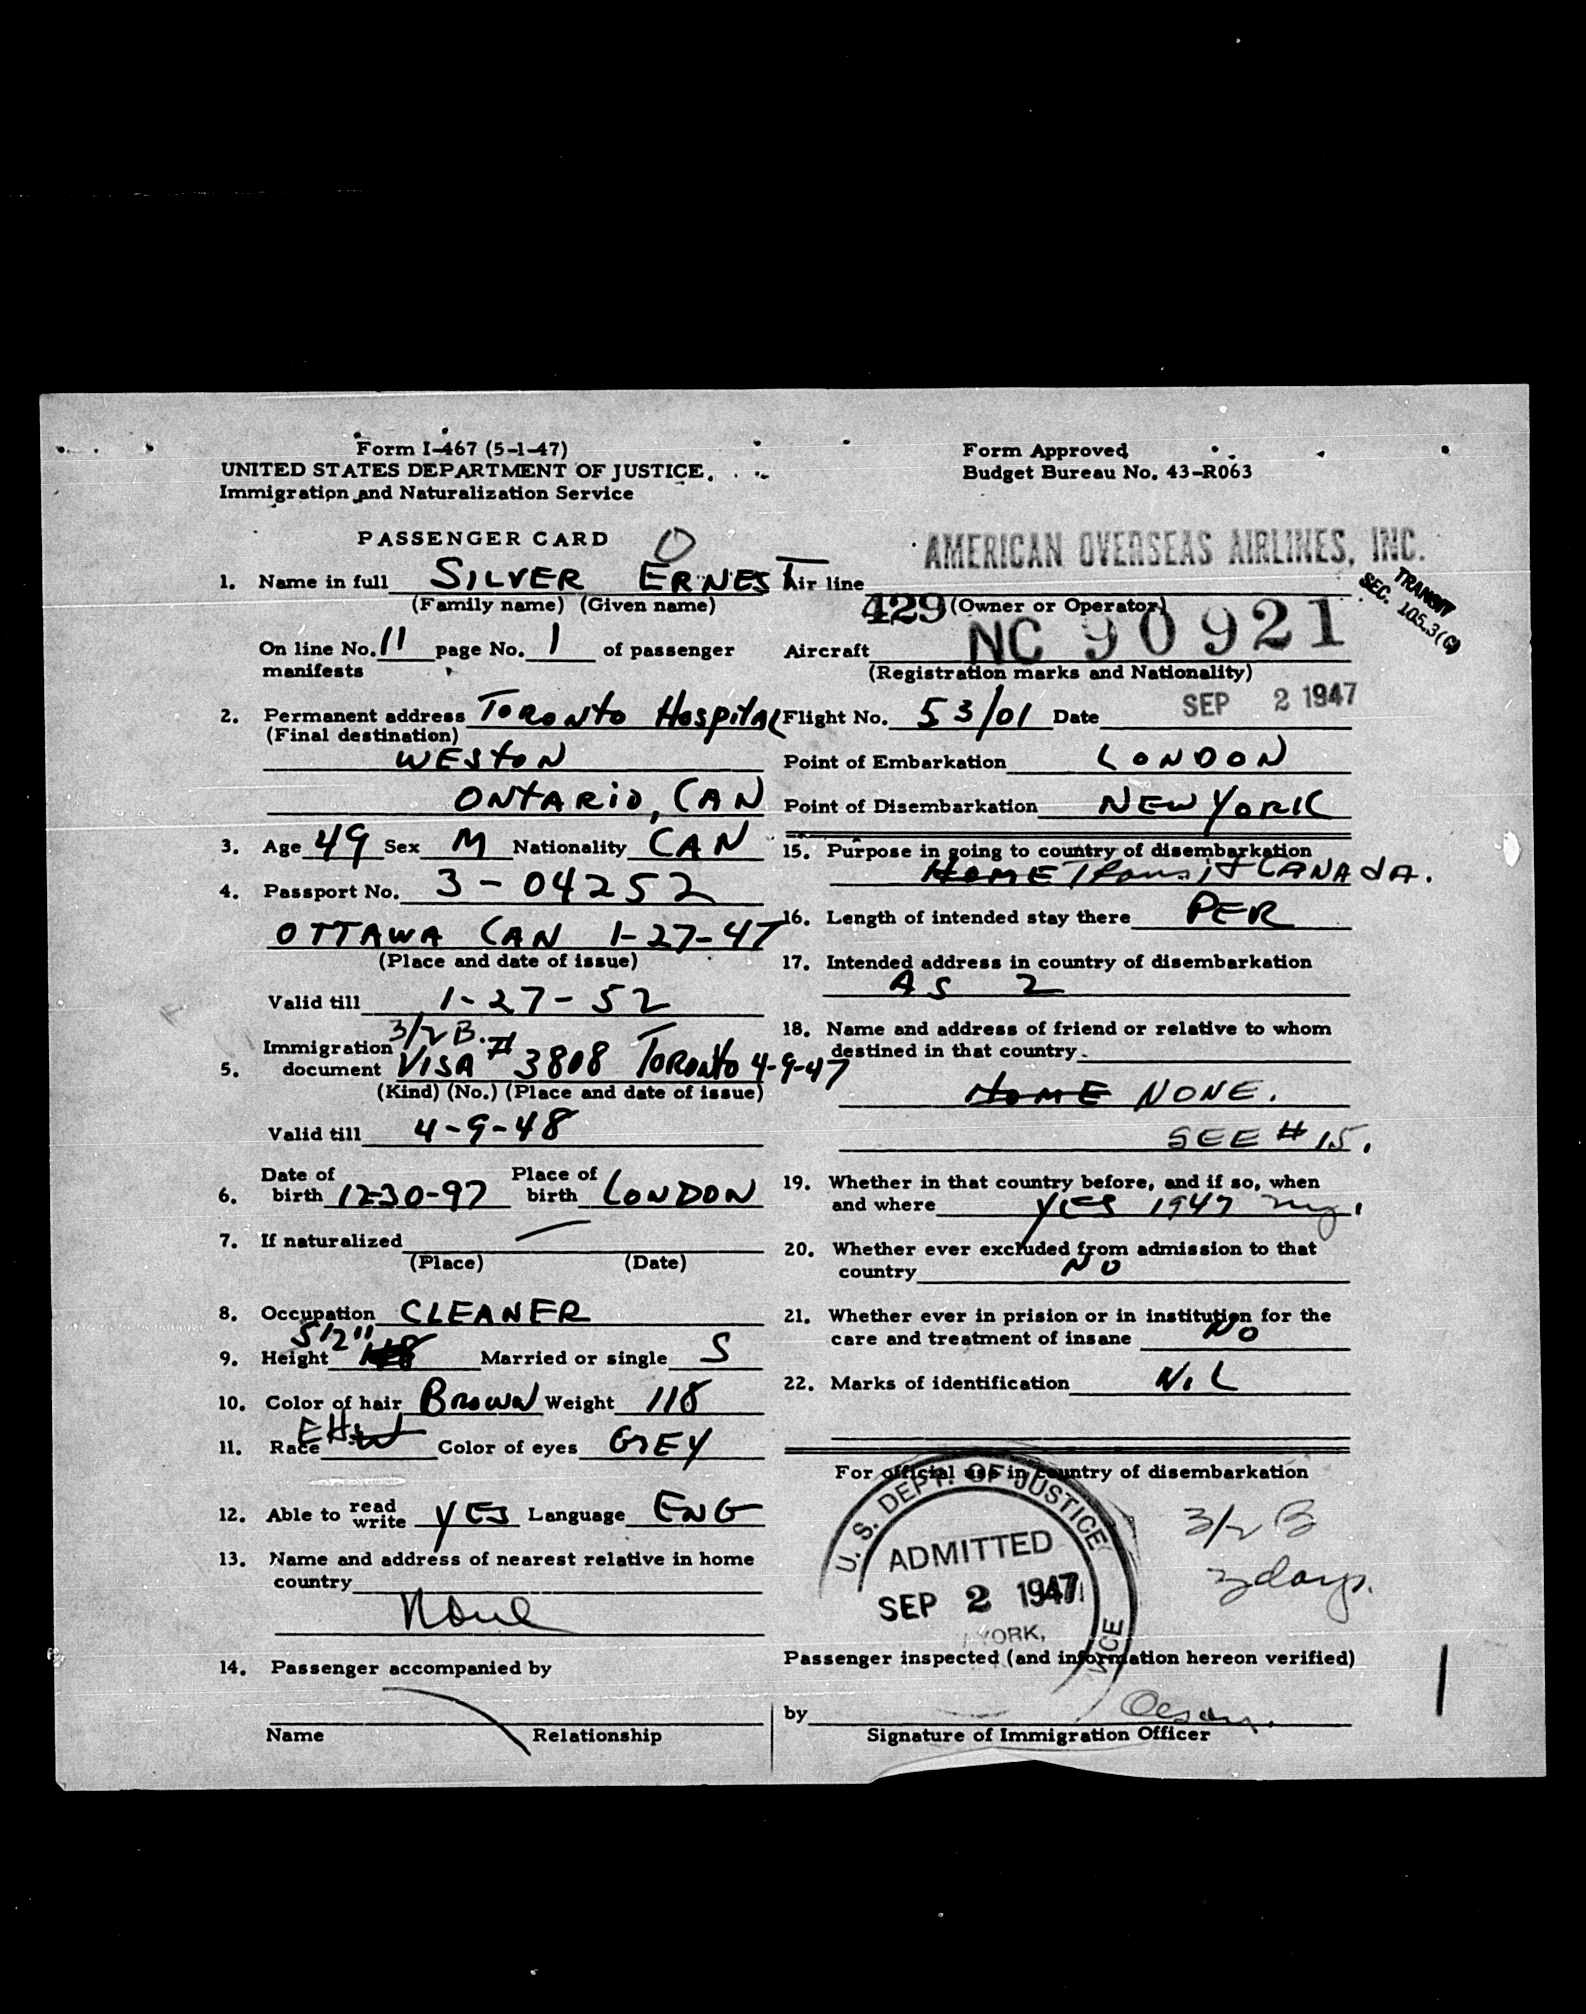 Form I-467 (5-1-47)
UNITED STATES DEPARTMENT OF JUSTICE
Immigration and Naturalization Service
Form Approved
Budget Bureau No. 43-R063
PASSENGER CARD
1. Name in full SILVER ERNEST
(Family name) (Given name)
On line No. 11 page No. 1 of passenger
manifests
2. Permanent address TORONTO HOSPITAL
(Final destination)
WESTON
ONTARIO, CAN
3. Age 49 Sex M Nationality CAN
4. Passport No. 3-04252
OTTAWA CAN 1-27-47
(Place and date of issue)
Valid till 1-27-52
3/2 B.
Immigration
5. document VISA # 3808 TORONTO 4-9-47
(Kind) (No.) (Place and date of issue)
Valid till 4-9-48
6. Date of birth 12-30-97 Place of birth LONDON
7. If naturalized
(Place) (Date)
8. Occupation CLEANER
9. Height 5'2" Married or single S
10. Color of hair BROWN Weight 118
11. Race Color of eyes GREY
12. Able to read write YES Language ENG
13. Name and address of nearest relative in home
country
None
14. Passenger accompanied by
Name Relationship
AMERICAN OVERSEAS AIRLINES, INC.
Air line
(Owner or Operator)
TRANSIT
SEC. 105.3(G)
429
Aircraft NC 90921
(Registration marks and Nationality)
Flight No. 53/01 Date SEP 2 1947
Point of Embarkation LONDON
Point of Disembarkation NEW YORK
15. Purpose in going to country of disembarkation
HOME Transit CANADA.
16. Length of intended stay there PER
17. Intended address in country of disembarkation
AS 2
18. Name and address of friend or relative to whom
destined in that country
HOME NONE.
SEE # 15.
19. Whether in that country before, and if so, when
and where YES 1947 ny.
20. Whether ever excluded from admission to that
country NO
21. Whether ever in prision or in institution for the
care and treatment of insane NO
22. Marks of identification NIL
For official use in country of disembarkation
U. S. DEPT. OF JUSTICE
ADMITTED
SEP 2 1947
YORK,
3/2 B
3 days.
Passenger inspected (and information hereon verified)
by
Signature of Immigration Officer